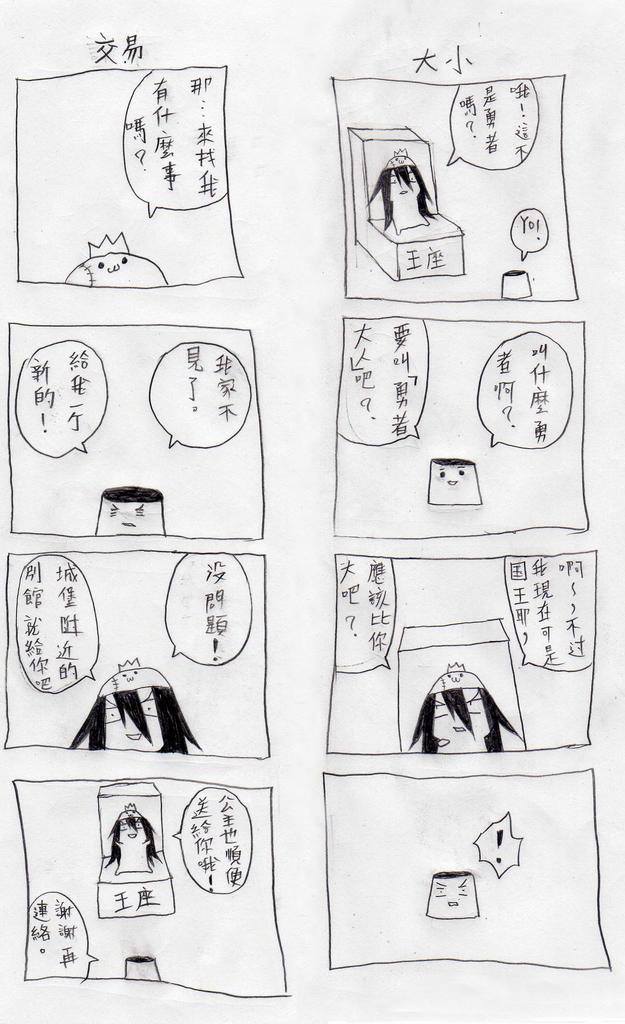 大小
哦！這不
是勇者
嗎？
YO!
王座
叫什麼勇
者啊？
要叫「勇者
大人」吧？
啊～，不过
我現在可是
国王耶，
應該比你
大吧？
！
交易
那…來找我
有什麼事
嗎？
我家不
見了。
給我一个
新的！
沒問題！
城堡附近的
別館就給你吧
公主也順便
送給你哦！
王座
謝謝再
連絡。